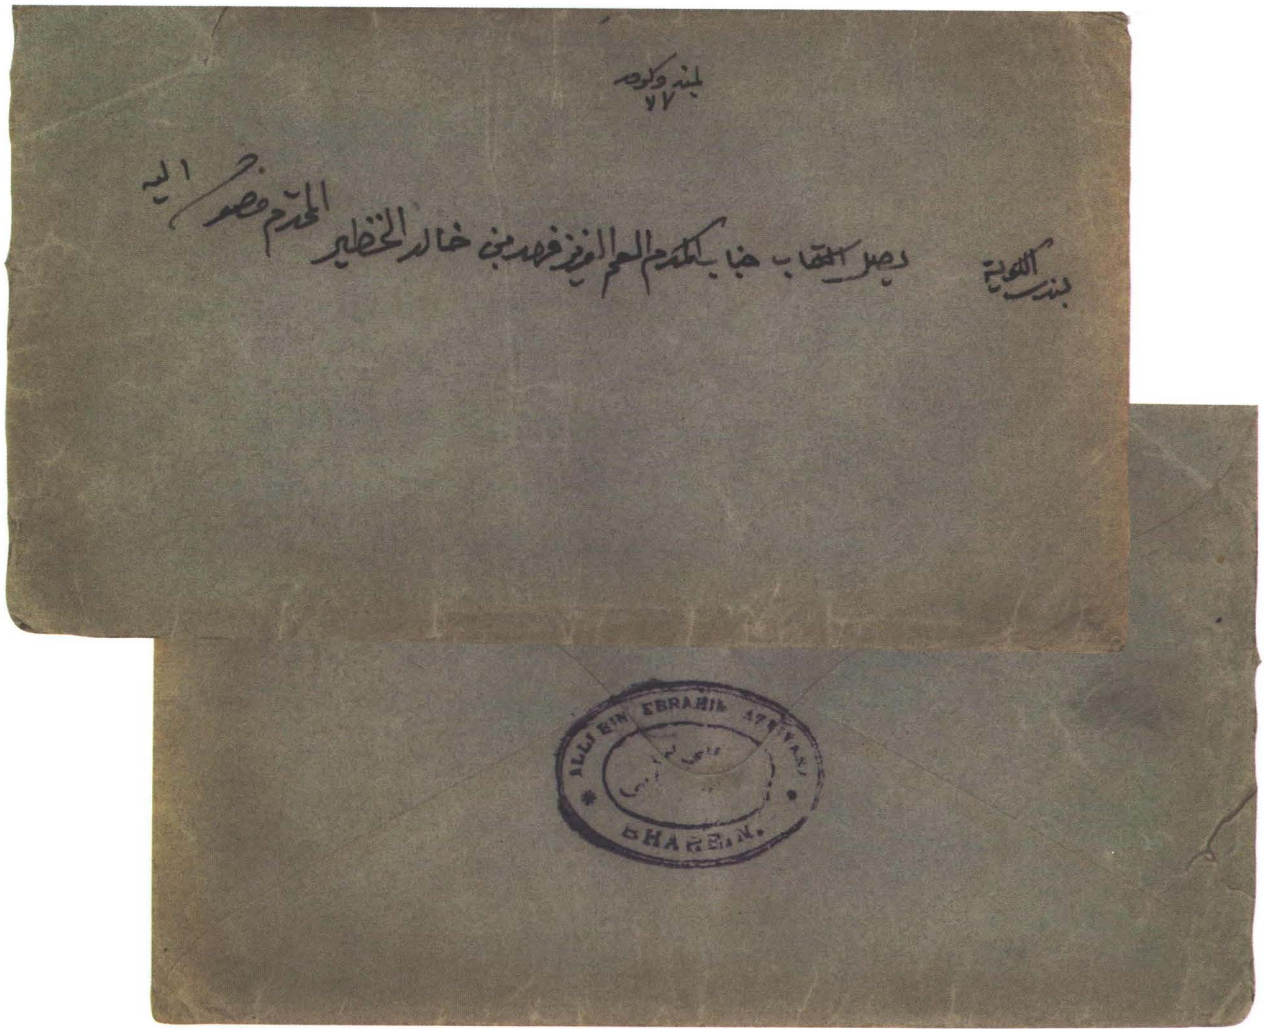 بمنه وكرمه
٧٧
بندر الكويت
يصل الكتاب جناب المكرم العم العزيز فهد بن خالد الخضير المحترم
اليه
ALLI BIN EBRAHIM
BHAREIN.